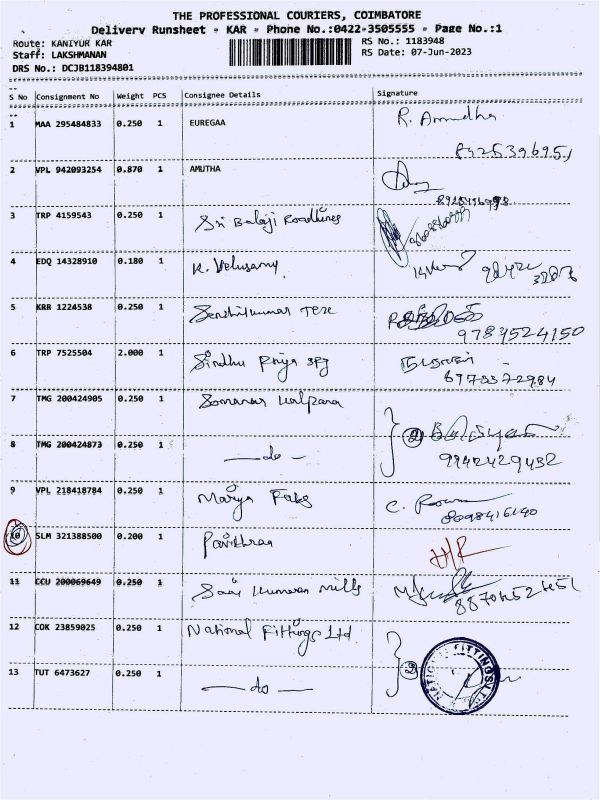 THE PROFESSIONAL COURIERS, COIMBATORE
Delivery Runsheet - KAR - Phone No.:0422-3505555 - Page No.:1
Route: KANIYUR KAR
RS No.: 1183948
Staff: LAKSHMANAN
RS Date: 07-Jun-2023
DRS No.: DCJB118394801
S No Consignment No Weight PCS Consignee Details Signature
1 MAA 295484833 0.250 1 EUREGAA R. Anudha
2 VPL 942093254 0.870 1 AMUTHA
3 TRP 4159543 0.250 1 Sri Balaji Roadlines
4 EDQ 14328910 0.180 1 K. Velusamy
5 KRR 1224538 0.250 1 Senthilkumar Tex
9789524150
6 TRP 7525504 2.000 1 Sindhu Priya
7 TMG 200424905 0.250 1 Kalpana
8 TMG 200424873 0.250 1 —do— 2
9942429432
9 VPL 218418784 0.250 1 Marya Fabs
8098416140
10 SLM 321388500 0.200 1 Pavithran
11 CCU 200069649 0.250 1 Saai Kumaran Mills
12 COK 23859025 0.250 1 National Fittings Ltd
13 TUT 6473627 0.250 1 —do— 2